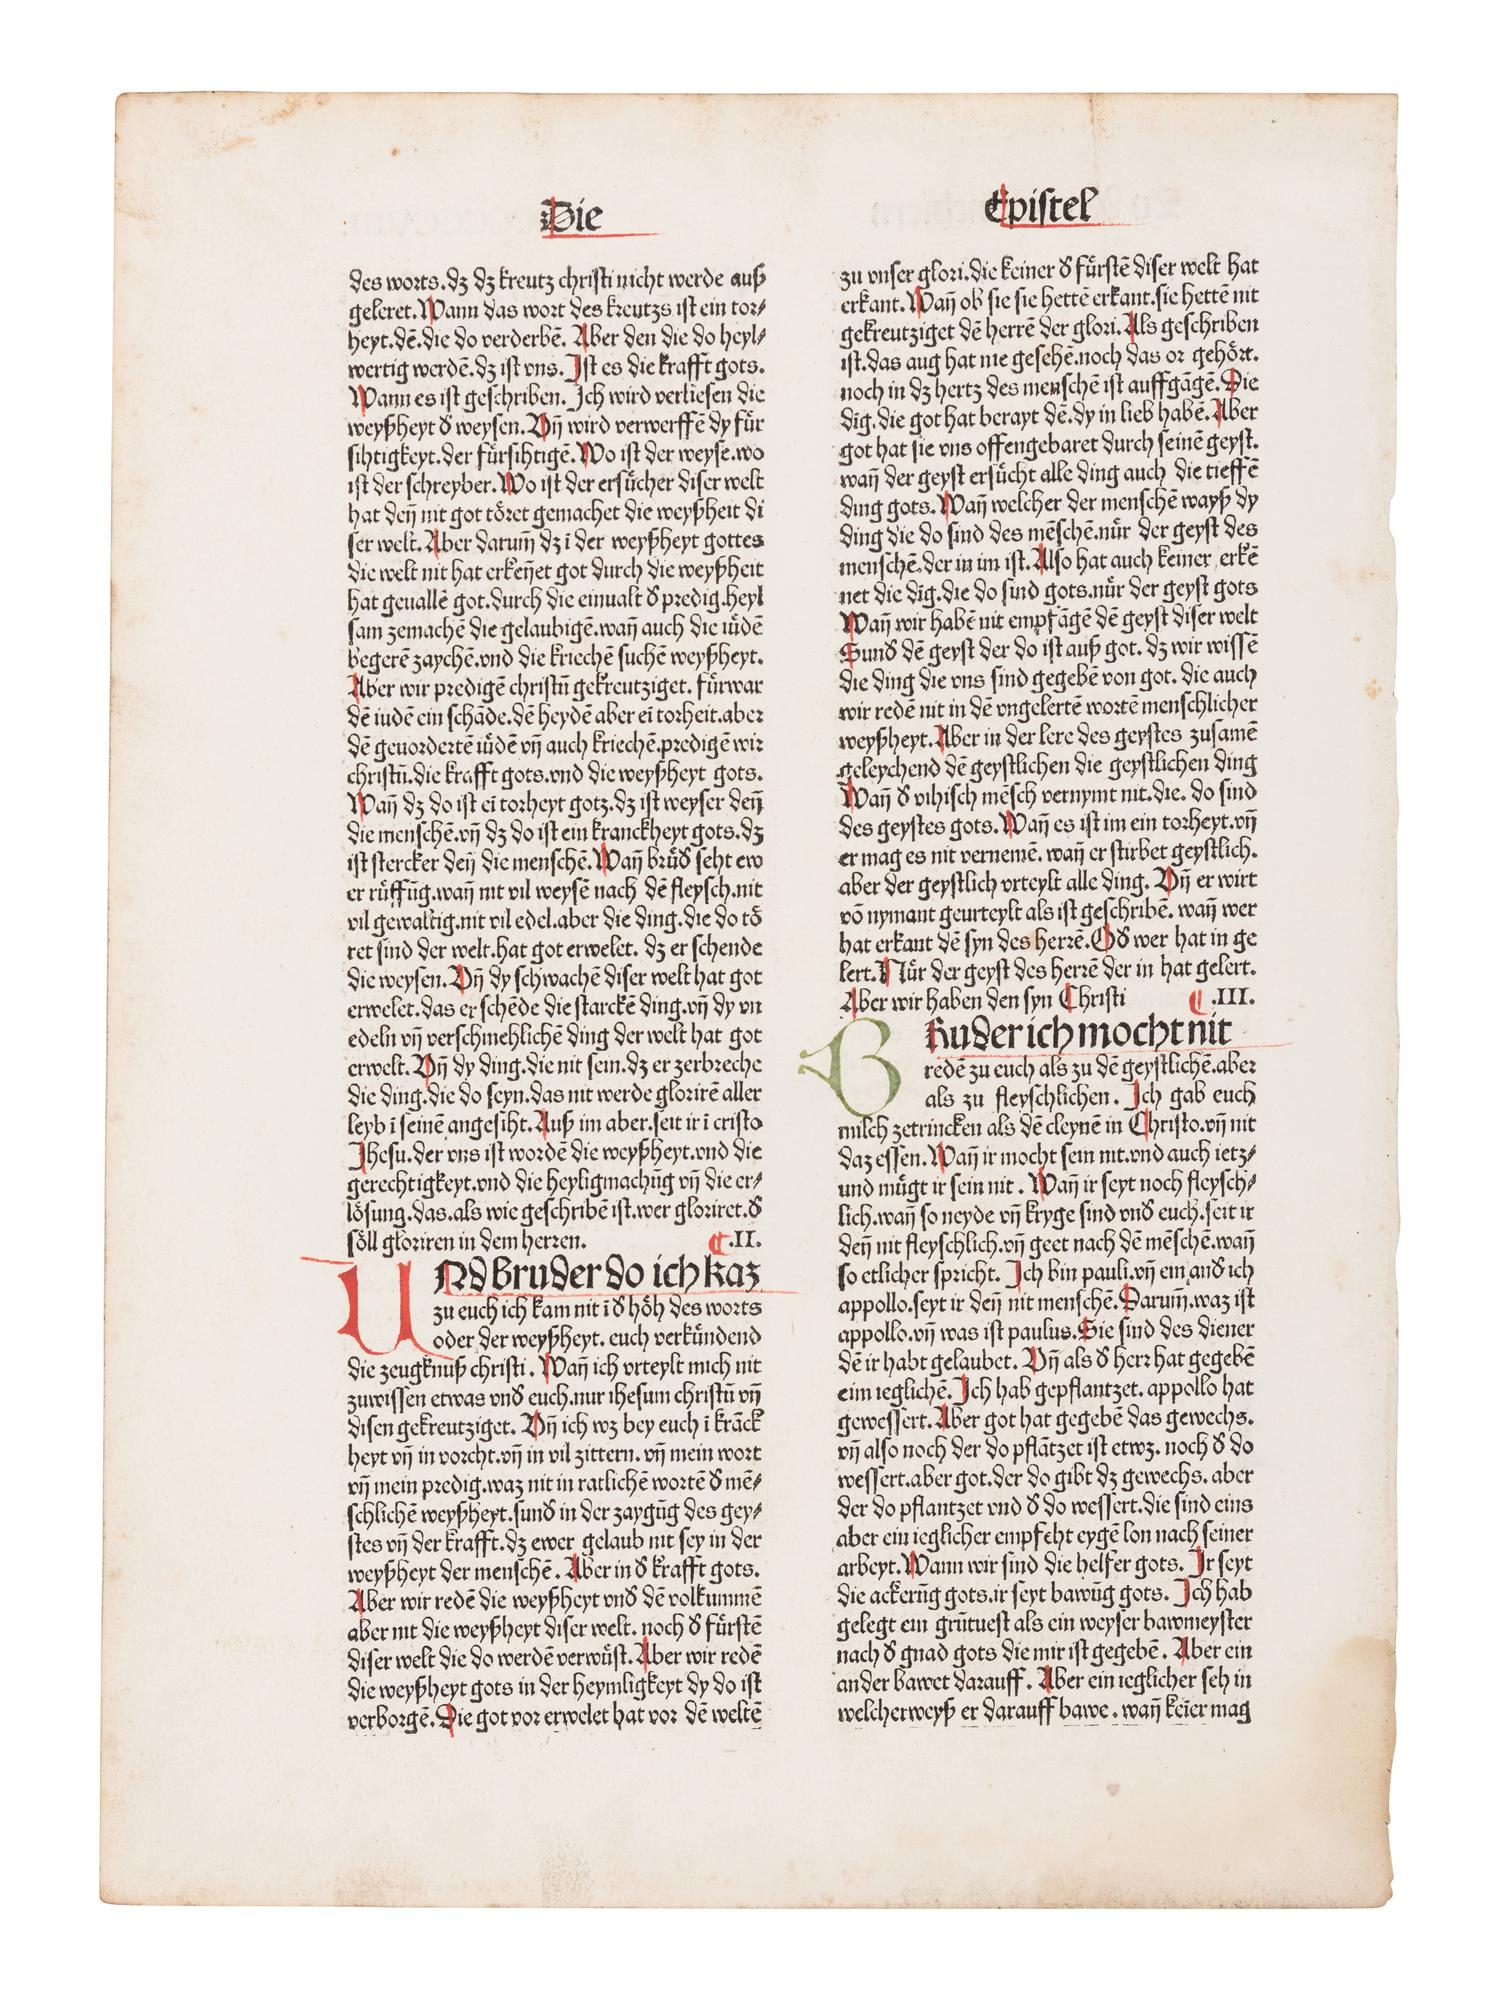 Die
Epistel
des worts. dz dz kreutz christi nicht werde auß
geleret. Wann das wort des kreutzs ist ein tor⸗
heyt. dē. die do verderbē. Aber den die do heyl⸗
wertig werdē. dz ist vns. Ist es die krafft gots.
Wann es ist geschriben. Ich wird verliesen die
weyßheyt d̕ weysen. Vn̄ wird verwerffē dy für
sihtigkeyt. der fürsihtigē. Wo ist der weyse. wo
ist der schreyber. Wo ist der ersůcher diser welt
hat den̄ nit got töret gemachet die weyßheit di
ser welt. Aber darum̄ dz ī der weyßheyt gottes
die welt nit hat erken̄et got durch die weyßheit
hat geuallē got. durch die einualt d̕ predig. heyl
sam zemachē die gelaubigē. wan̄ auch die iüdē
begerē zaychē. vnd die kriechē suchē weyßheyt.
Aber wir predigē christū gekreutziget. fürwar
dē iudē ein schāde. dē heydē aber eī torheit. aber
dē geuordertē iüdē vn̄ auch kriechē. predigē wir
christū. die krafft gots. vnd die weyßheyt gots.
Wan̄ dz do ist eī torheyt gotz. dz ist weyser den̄
die menschē. vn̄ dz do ist ein kranckheyt gots. dz
ist stercker den̄ die menschē. Wan̄ brüd̕ seht ew
er rüffūg. wan̄ nit vil weysē nach dē fleysch. nit
vil gewaltig. nit vil edel. aber die ding. die do tö
ret sind der welt. hat got erwelet. dz er schende
die weysen. Vn̄ dy schwachē diser welt hat got
erwelet. das er schēde die starckē ding. vn̄ dy vn
edeln vn̄ verschmehlichē ding der welt hat got
erwelt. Vn̄ dy ding. die nit sein. dz er zerbreche
die ding. die do seyn. das nit werde glorirē aller
leyb ī seinē angesiht. Auß im aber. seit ir ī cristo
Jhesu. der vns ist wordē die weyßheyt. vnd die
gerechtigkeyt. vnd die heyligmachūg vn̄ die er⸗
lösung. das. als wie geschribē ist. wer gloriret. d̕
söll gloriren in dem herren. ¶ .II.
UNd bruder do ich kaz
zu euch ich kam nit ī d̕ höh des worts
oder der weyßheyt. euch verkündend
die zeugknuß christi. Wan̄ ich vrteylt mich nit
zuwissen etwas vnd̕ euch. nur ihesum christū vn̄
disen gekreutziget. Vn̄ ich wz bey euch ī kräck
heyt vn̄ in vorcht. vn̄ in vil zittern. vn̄ mein wort
vn̄ mein predig. waz nit in ratlichē wortē d̕ mē⸗
schlichē weyßheyt. sund̕ in der zaygūg des gey⸗
stes vn̄ der krafft. dz ewer gelaub nit sey in der
weyßheyt der menschē. Aber in d̕ krafft gots.
Aber wir redē die weyßheyt vnd̕ dē volkummē
aber nit die weyßheyt diser welt. noch d̕ fürstē
diser welt die do werdē verwüst. Aber wir redē
die weyßheyt gots in der heymligkeyt dy do ist
verborgē. Die got vor erwelet hat vor dē weltē
zu vnser glori. die keiner d̕ fürstē diser welt hat
erkant. Wan̄ ob sie sie hettē erkant. sie hettē nit
gekreutziget dē herrē der glori. Als geschriben
ist. das aug hat nie gesehē. noch das or gehört.
noch in dz hertz des menschē ist auffgāgē. Die
dīg. die got hat berayt dē. dy in lieb habē. Aber
got hat sie vns offengebaret durch seinē geyst.
wan̄ der geyst ersůcht alle ding auch die tieffē
ding gots. Wan̄ welcher der menschē wayß dy
ding die do sind des mēschē. nür der geyst des
menschē. der in im ist. Also hat auch keiner erkē
net die dīg. die do sind gots. nür der geyst gots
Wan̄ wir habē nit empfāgē dē geyst diser welt
Sund̕ dē geyst der do ist auß got. dz wir wissē
die ding die vns sind gegebē von got. die auch
wir redē nit in dē vngelertē wortē menschlicher
weyßheyt. Aber in der lere des geystes zusamē
geleychend dē geystlichen die geystlichen ding
Wan̄ d̕ vihisch mēsch vernymt nit. die. do sind
des geystes gots. Wan̄ es ist im ein torheyt. vn̄
er mag es nit vernemē. wan̄ er stirbet geystlich.
aber der geystlich vrteylt alle ding. Vn̄ er wirt
vō nymant geurteylt als ist geschribē. wan̄ wer
hat erkant dē syn des herrē. Od̕ wer hat in ge
lert. Nür der geyst des herrē der in hat gelert.
Aber wir haben den syn Christi ¶ .III.
BRuder ich mocht nit
redē zu euch als zu dē geystlichē. aber
als zu fleyschlichen. Ich gab euch
milch zetrincken als dē cleynē in Christo. vn̄ nit
daz essen. Wan̄ ir mocht sein nit. vnd auch ietz⸗
und mügt ir sein nit. Wan̄ ir seyt noch fleysch⸗
lich. wan̄ so neyde vn̄ kryge sind vnd̕ euch. seit ir
den̄ nit fleyschlich. vn̄ geet nach dē mēschē. wan̄
so etlicher spricht. Ich bin pauli. vn̄ ein and̕ ich
appollo. seyt ir den̄ nit menschē. Darum̄. waz ist
appollo. vn̄ was ist paulus. Sie sind des diener
dē ir habt gelaubet. Vn̄ als d̕ herr hat gegebē
eim ieglichē. Ich hab gepflantzet. appollo hat
gewessert. Aber got hat gegebē das gewechs.
vn̄ also noch der do pflātzet ist etwz. noch d̕ do
wessert. aber got. der do gibt dz gewechs. aber
der do pflantzet vnd d̕ do wessert. die sind eins
aber ein ieglicher empfeht eygē lon nach seiner
arbeyt. Wann wir sind die helfer gots. Ir seyt
die ackerūg gots. ir seyt bawūg gots. Ich hab
gelegt ein grūtuest als ein weyser bawmeyster
nach d̕ gnad gots die mir ist gegebē. Aber ein
ander bawet darauff. Aber ein ieglicher seh in
welcherweyß er darauff bawe. wan̄ keīer mag